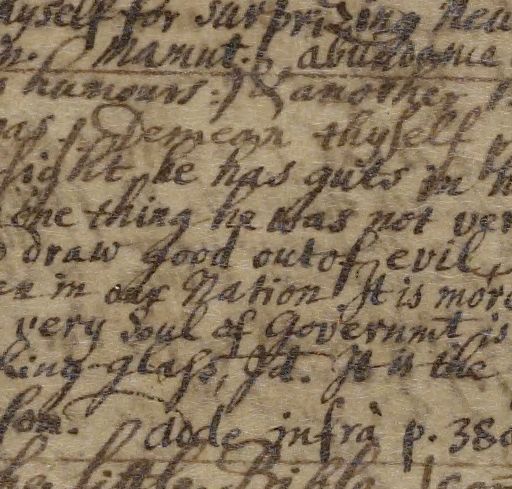 hyself for surprizing New
n. Mamut. abundance
s humours. another
has Demean thyself
light he has guts in
One thing he was not ver
draw good out of evil
er in our Nation It is more
very Soul of Governmt is
king-glass, Id. It is the
son. dode infrà p. 380
the little Bible